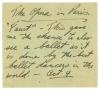 The Opera in Paris
"Faust" - This gave
me the chance to also
see a ballet as it
is done by the best
ballet dancers in the
world - Oct 4